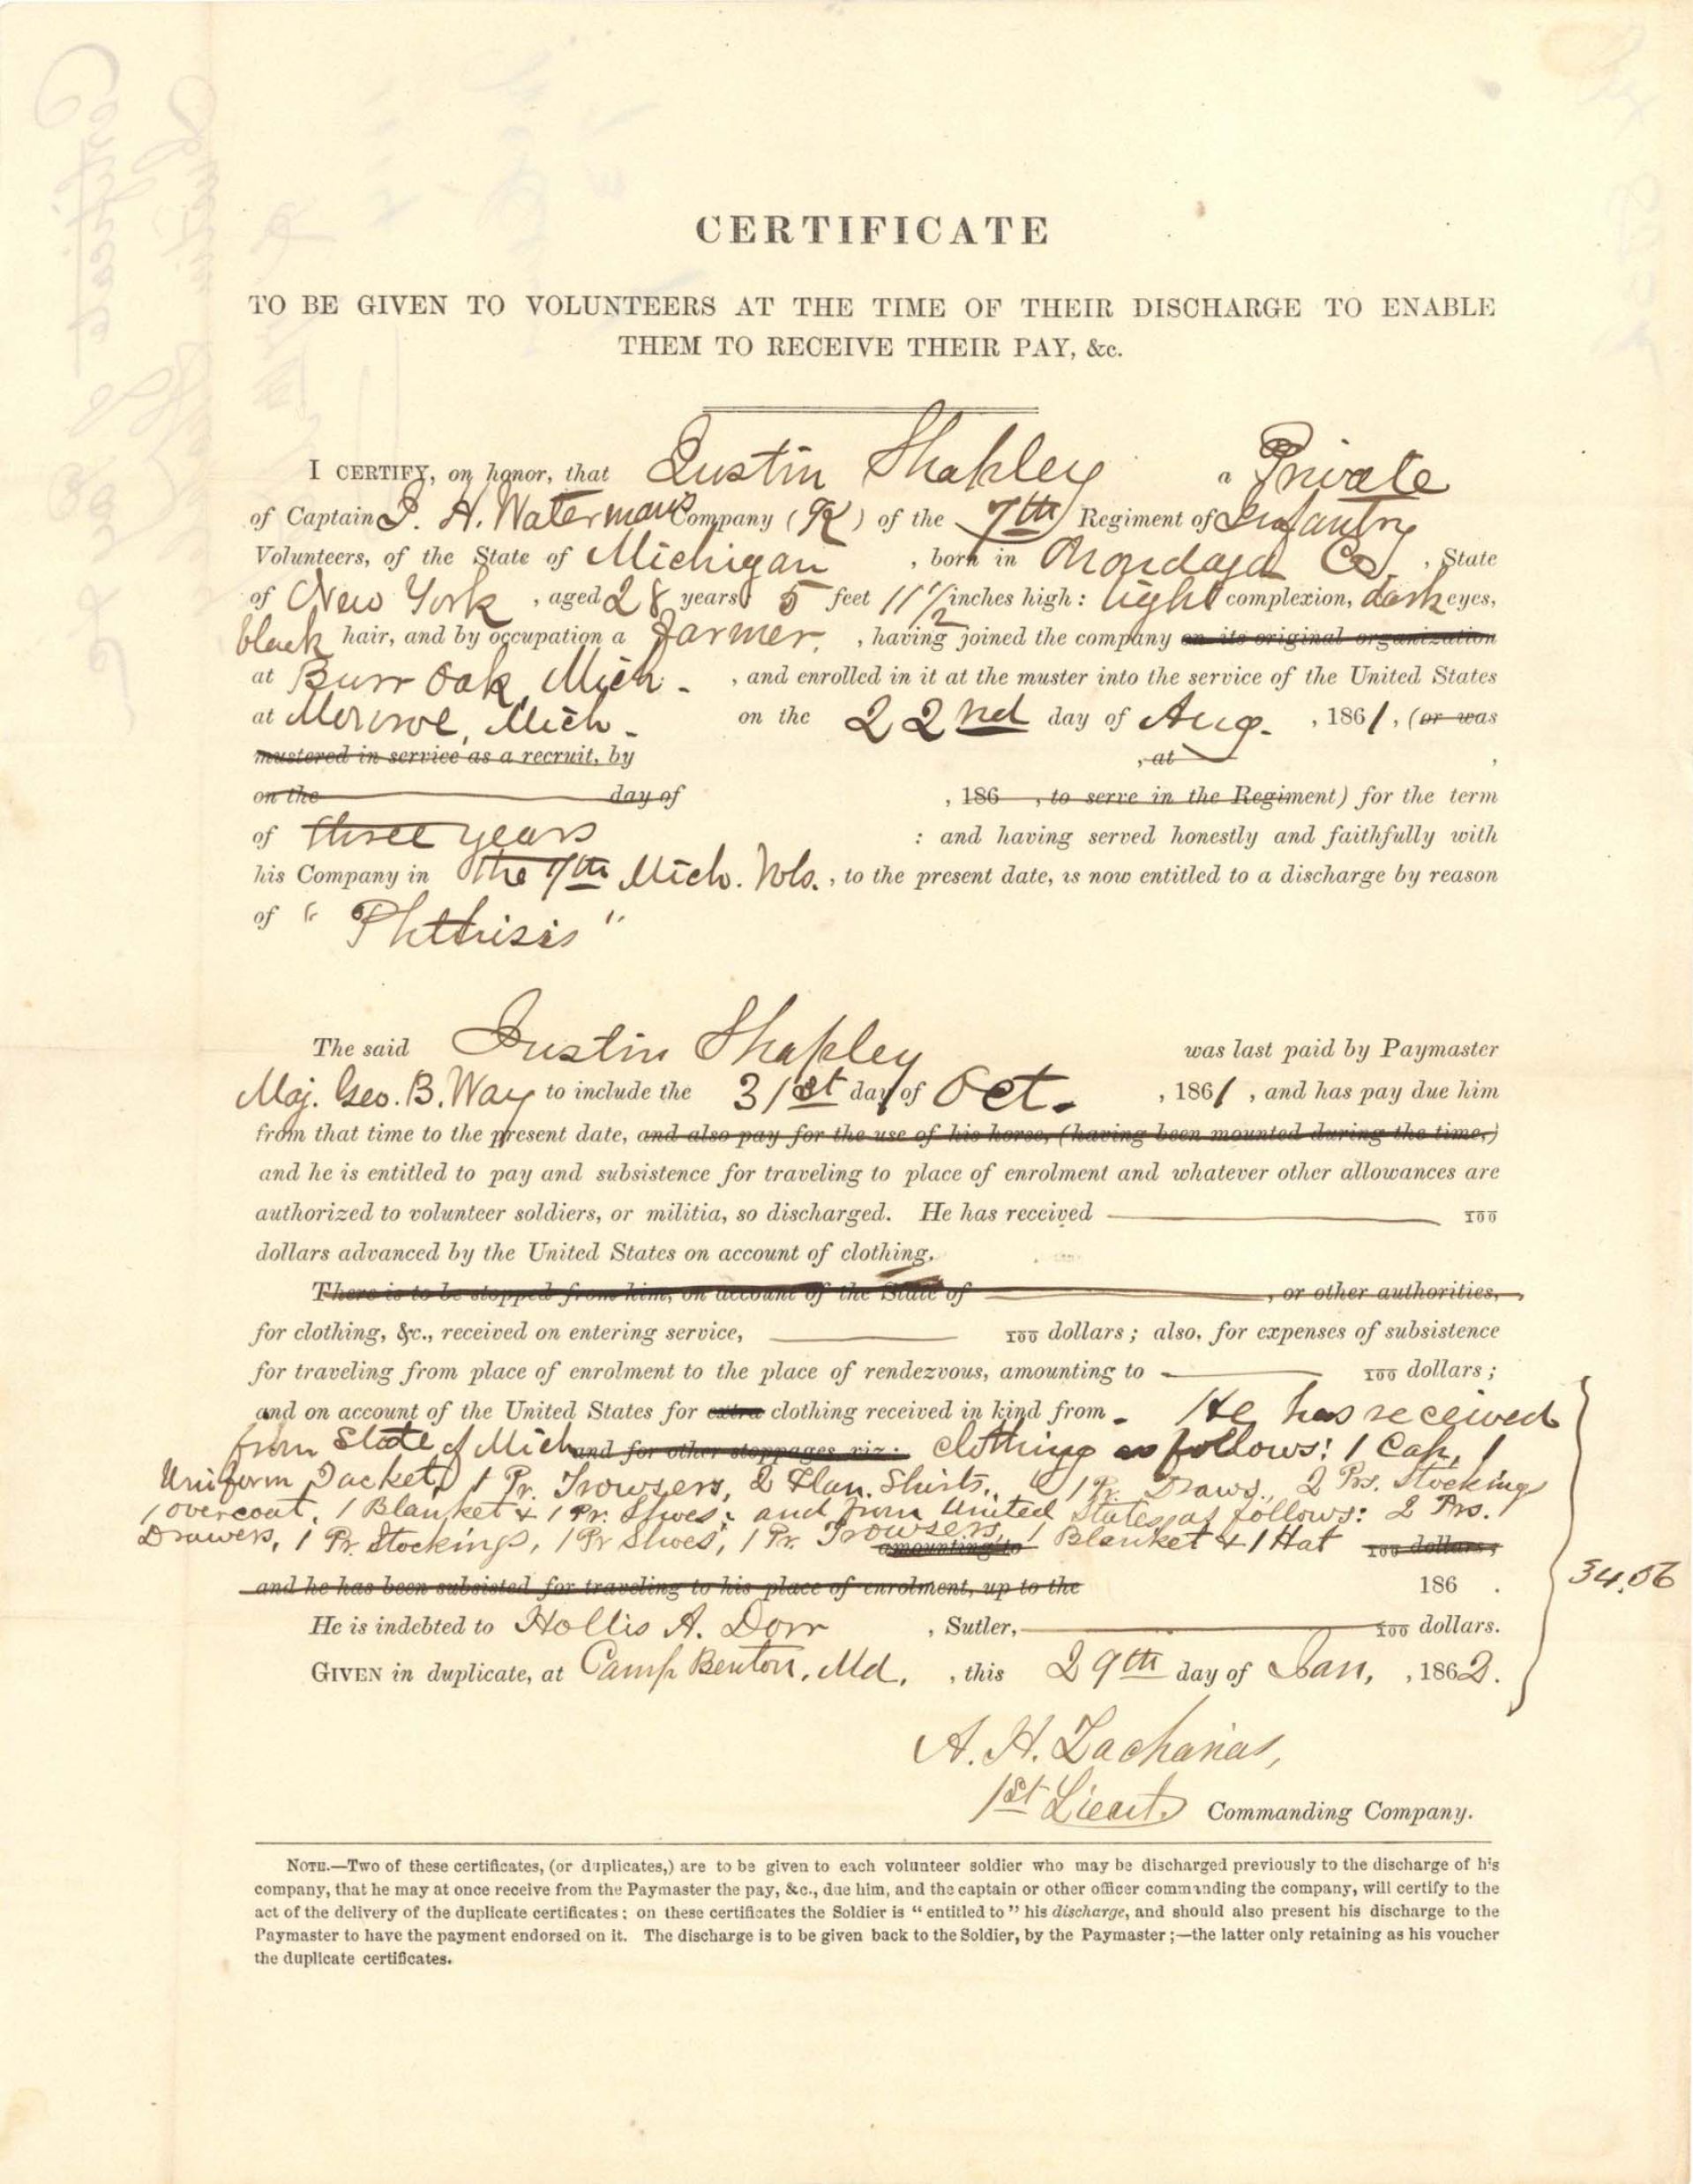 CERTIFICATE
TO BE GIVEN TO VOLUNTEERS AT THE TIME OF THEIR DISCHARGE TO ENABLE
THEM TO RECEIVE THEIR PAY, &c.
I CERTIFY, on honor, that Justin Shapley a Private
of Captain J. H. Waterman's Company (K) of the 7th Regiment of Infantry
Volunteers, of the State of Michigan, born in Onondaga Co., State
of New York, aged 28 years 5 feet 11 1/2 inches high: light complexion, dark eyes,
black hair, and by occupation a farmer, having joined the company on its original organization
at Burr Oak, Mich., and enrolled in it at the muster into the service of the United States
at Monroe, Mich. on the 22nd day of Aug., 1861, (or was
mustered in service as a recruit, by , at ,
on the day of , 186 , to serve in the Regiment) for the term
of three years : and having served honestly and faithfully with
his Company in the 7th Mich. Vols., to the present date, is now entitled to a discharge by reason
of "Phthisis"
The said Justin Shapley was last paid by Paymaster
Maj. Geo. B. Way to include the 31st day of Oct., 1861, and has pay due him
from that time to the present date, and also pay for the use of his horse, (having been mounted during the time,)
and he is entitled to pay and subsistence for traveling to place of enrolment and whatever other allowances are
authorized to volunteer soldiers, or militia, so discharged. He has received 100
dollars advanced by the United States on account of clothing.
There is to be stopped from him, on account of the State of , or other authorities,
for clothing, &c., received on entering service, 100 dollars; also, for expenses of subsistence
for traveling from place of enrolment to the place of rendezvous, amounting to 100 dollars;
and on account of the United States for extra clothing received in kind from. He has received
from State of Mich and for other stoppages, viz: clothing as follows: 1 Cap, 1
Uniform Jacket, 1 Pr. Trowsers, 2 Flan. Shirts, 1 Pr. Draws., 2 Prs. Stockings
1 overcoat, 1 Blanket & 1 Pr. Shoes; and from United States as follows: 2 Prs.
Drawers, 1 Pr. Stockings, 1 Pr Shoes, 1 Pr. Trowsers, amounting to 1 Blanket & 1 Hat 100 dollars;
34.06
and he has been subsisted for traveling to his place of enrolment, up to the 186 .
He is indebted to Hollis A. Dorr, Sutler, 100 dollars.
GIVEN in duplicate, at Camp Benton, Md., this 29th day of Jan., 1862.
A. H. Zacharias,
1st Lieut. Commanding Company.
NOTE.—Two of these certificates, (or duplicates,) are to be given to each volunteer soldier who may be discharged previously to the discharge of his
company, that he may at once receive from the Paymaster the pay, &c., due him, and the captain or other officer commanding the company, will certify to the
act of the delivery of the duplicate certificates; on these certificates the Soldier is "entitled to" his discharge, and should also present his discharge to the
Paymaster to have the payment endorsed on it. The discharge is to be given back to the Soldier, by the Paymaster;—the latter only retaining as his voucher
the duplicate certificates.